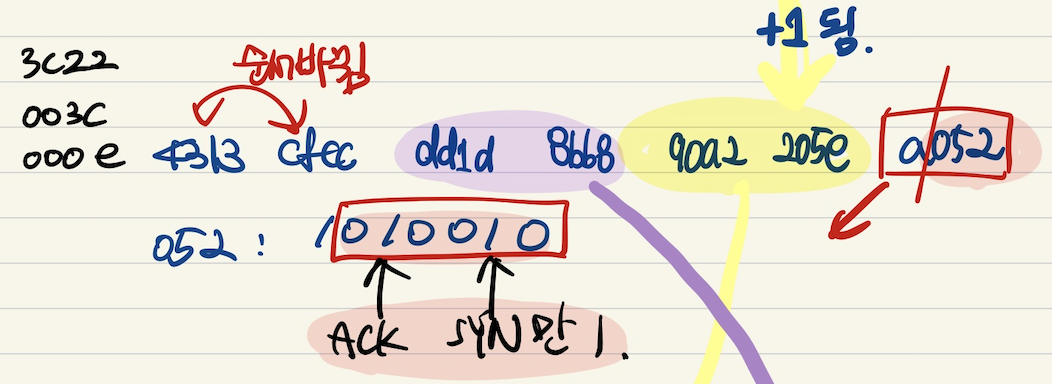 +1 됨.
3C22
순서바뀜
003C
000e 4313 cfec dd1d 8bb8 90a2 205e a052
052 : 1010010
ACK SYN만 1.